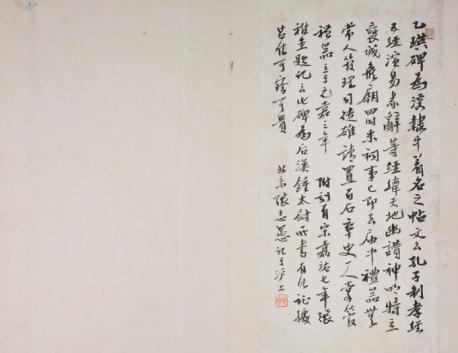 乙瑛碑為漢隸中著名之帖文云孔子制孝經
五經演易系辭等經緯天地幽讚神明特立
褒成 廟四時來祠事已即去廟中禮器無
常人掌理司徒雄請置百石卒史一人掌領
禮器立于元嘉三年 附刻有宋嘉祐七年張
稚圭題記云此碑為后漢鍾太尉所書有  據
 佳可寶可貴
北京張志愚記于滬上